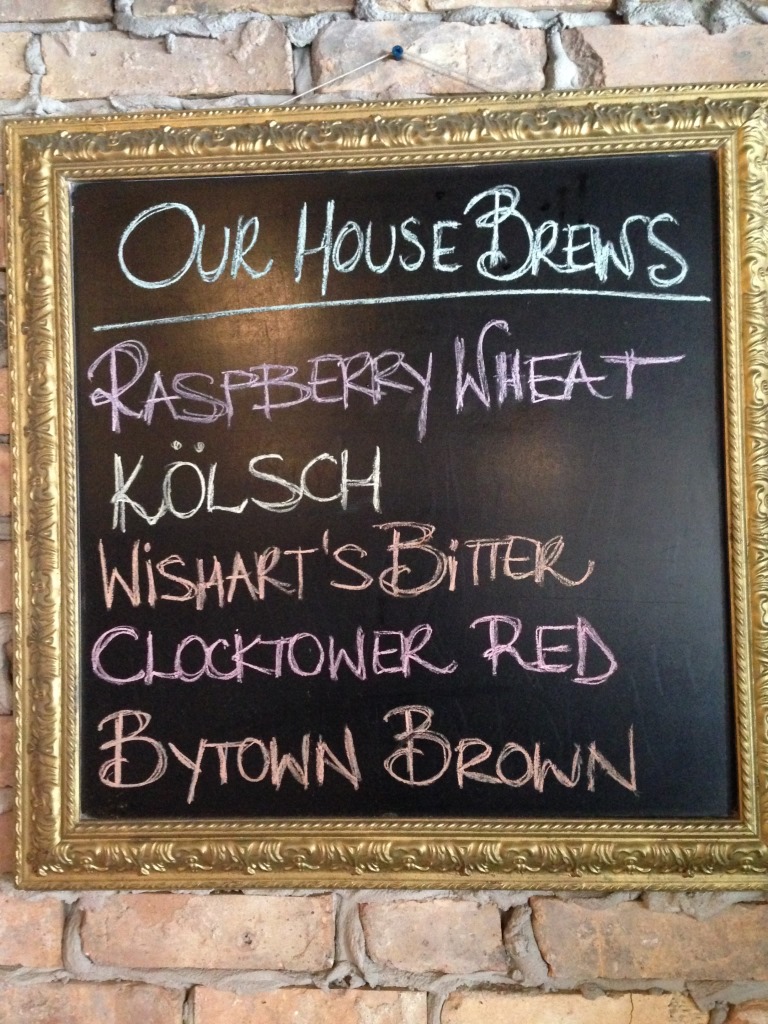 OUR HOUSE BREWS
RASPBERRY WHEAT
KÖLSCH
WiSHART'S BiTTER
CLOCKTOWER RED
BYTOWN BROWN